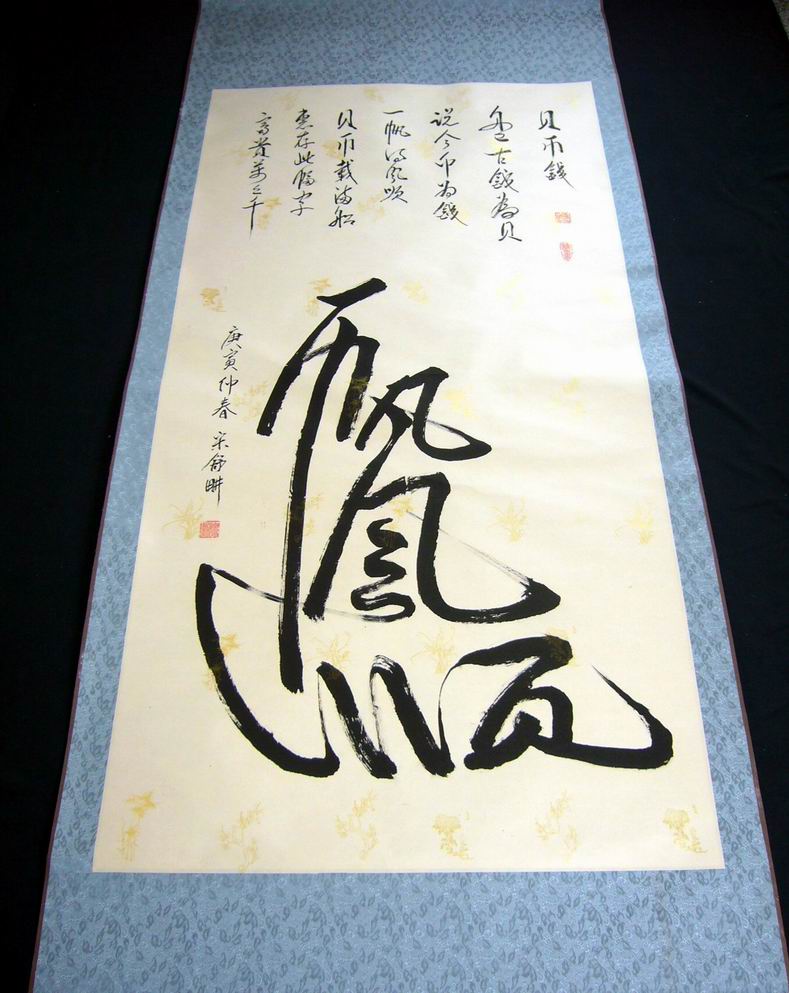 贝币钱
古钱为贝
说今币为钱
一帆得风顺
贝币载满船
惠存此幅字
富贵万千
一帆风顺
庚寅仲春 宋舒畊